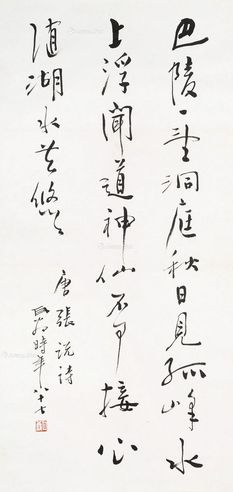 巴陵一望洞庭秋日見孤峰水
上浮聞道神仙不可接心
隨湖水共悠悠
唐張説詩
時年八十七